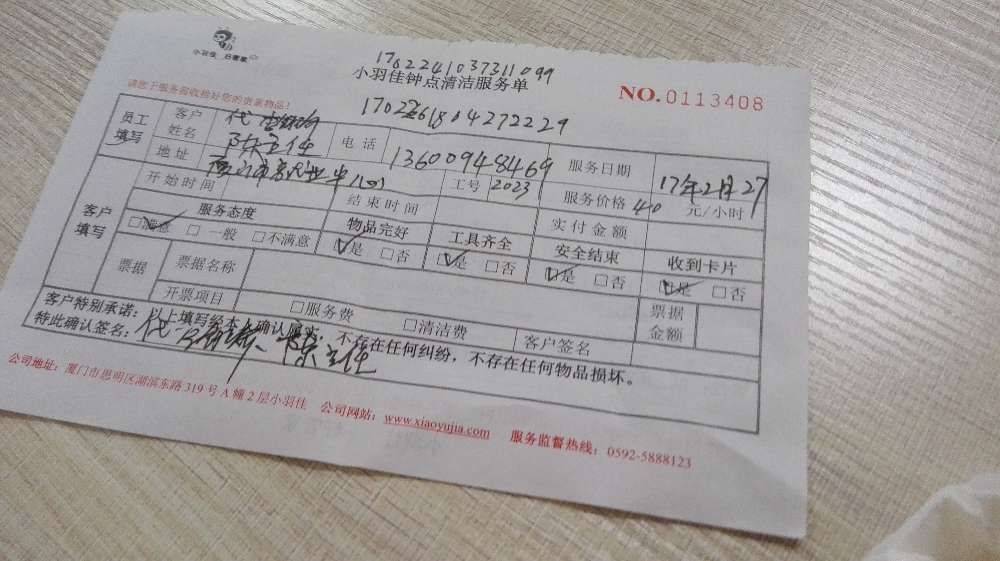 小羽佳 好管家
17022410373110 99
小羽佳钟点清洁服务单
NO.0113408
请您于服务前收拾好您的贵重物品!
1702261804272229
员工填写 客户姓名 代 电话 13600948469 服务日期 17年2月27
地址 工号 2023 服务价格 40 元/小时
开始时间 结束时间 实付金额
客户填写 服务态度 物品完好 工具齐全 安全结束 收到卡片
□满意 □一般 □不满意 □是 □否 □是 □否 □是 □否 □是 □否
票据 票据名称 票据金额
开票项目 □服务费 □清洁费 客户签名
客户特别承诺:以上填写经本人确认属实,不存在任何纠纷,不存在任何物品损坏。
特此确认签名:代
公司地址:厦门市思明区湖滨东路319号A幢2层小羽佳 公司网站:www.xiaoyujia.com 服务监督热线:0592-5888123